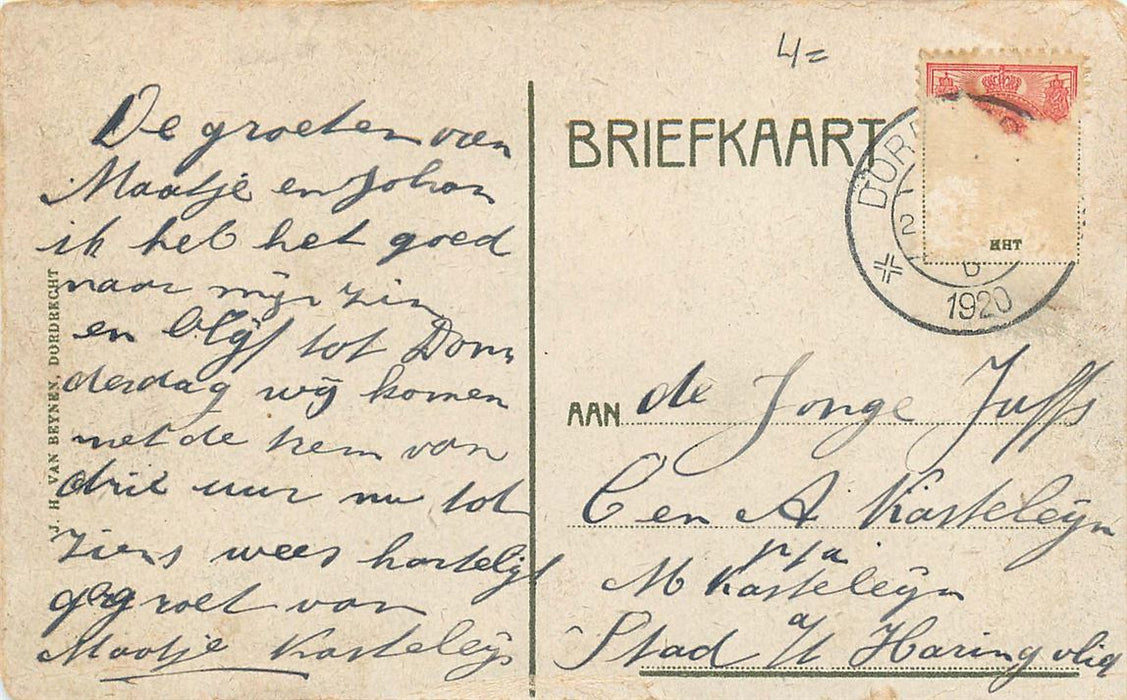 4=
De groeten van
Maatje en Johan
ik heb het goed
naar mijn zin
en blijf tot Don
derdag wij komen
met de trem van
drie uur nu tot
ziens wees hartelijk
gegroet van
Maatje Kasteleijn
J. H. VAN BEYNEN, DORDRECHT
BRIEFKAART
DOR
2
D
1920
AAN de Jonge Juffs
C en A Kasteleijn
p/a
M Kasteleijn
Stad a/h Haringvliet